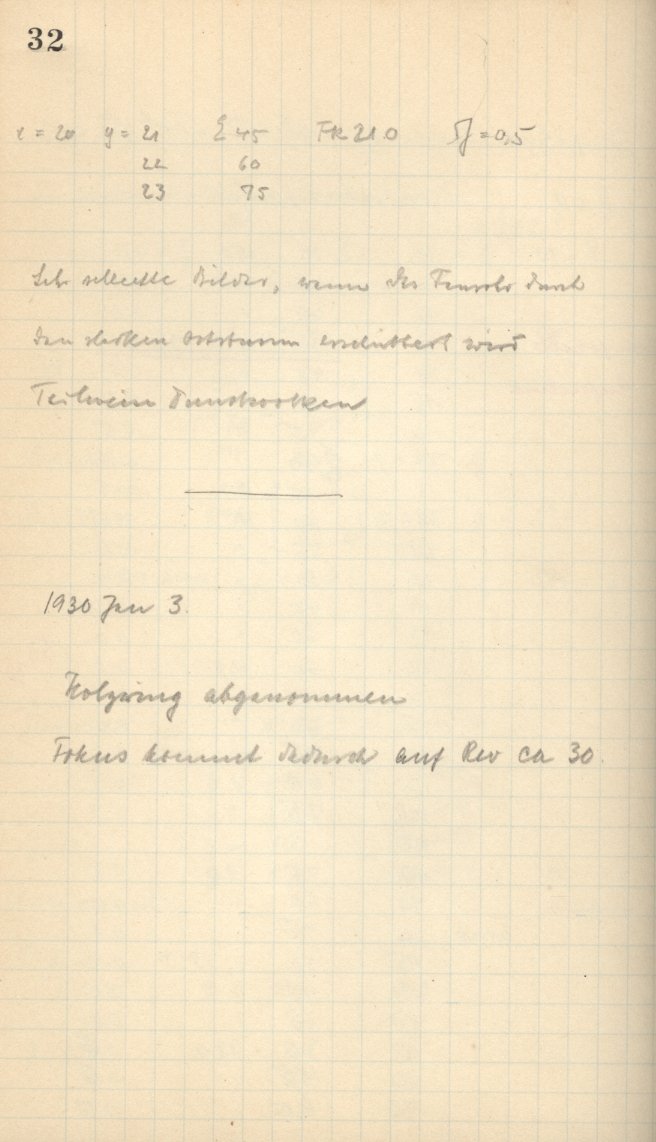 32
x = 20 y = 21 45 FR 21.0 = 0,5
22 60
23 75
Sehr schlechte Bilder, wenn das Fernrohr durch
den starken Oststurm erschüttert wird
Teilweise Dunstwolken
1930 Jan 3.
Holzring abgenommen
Fokus kommt dadurch auf Rev ca 30.